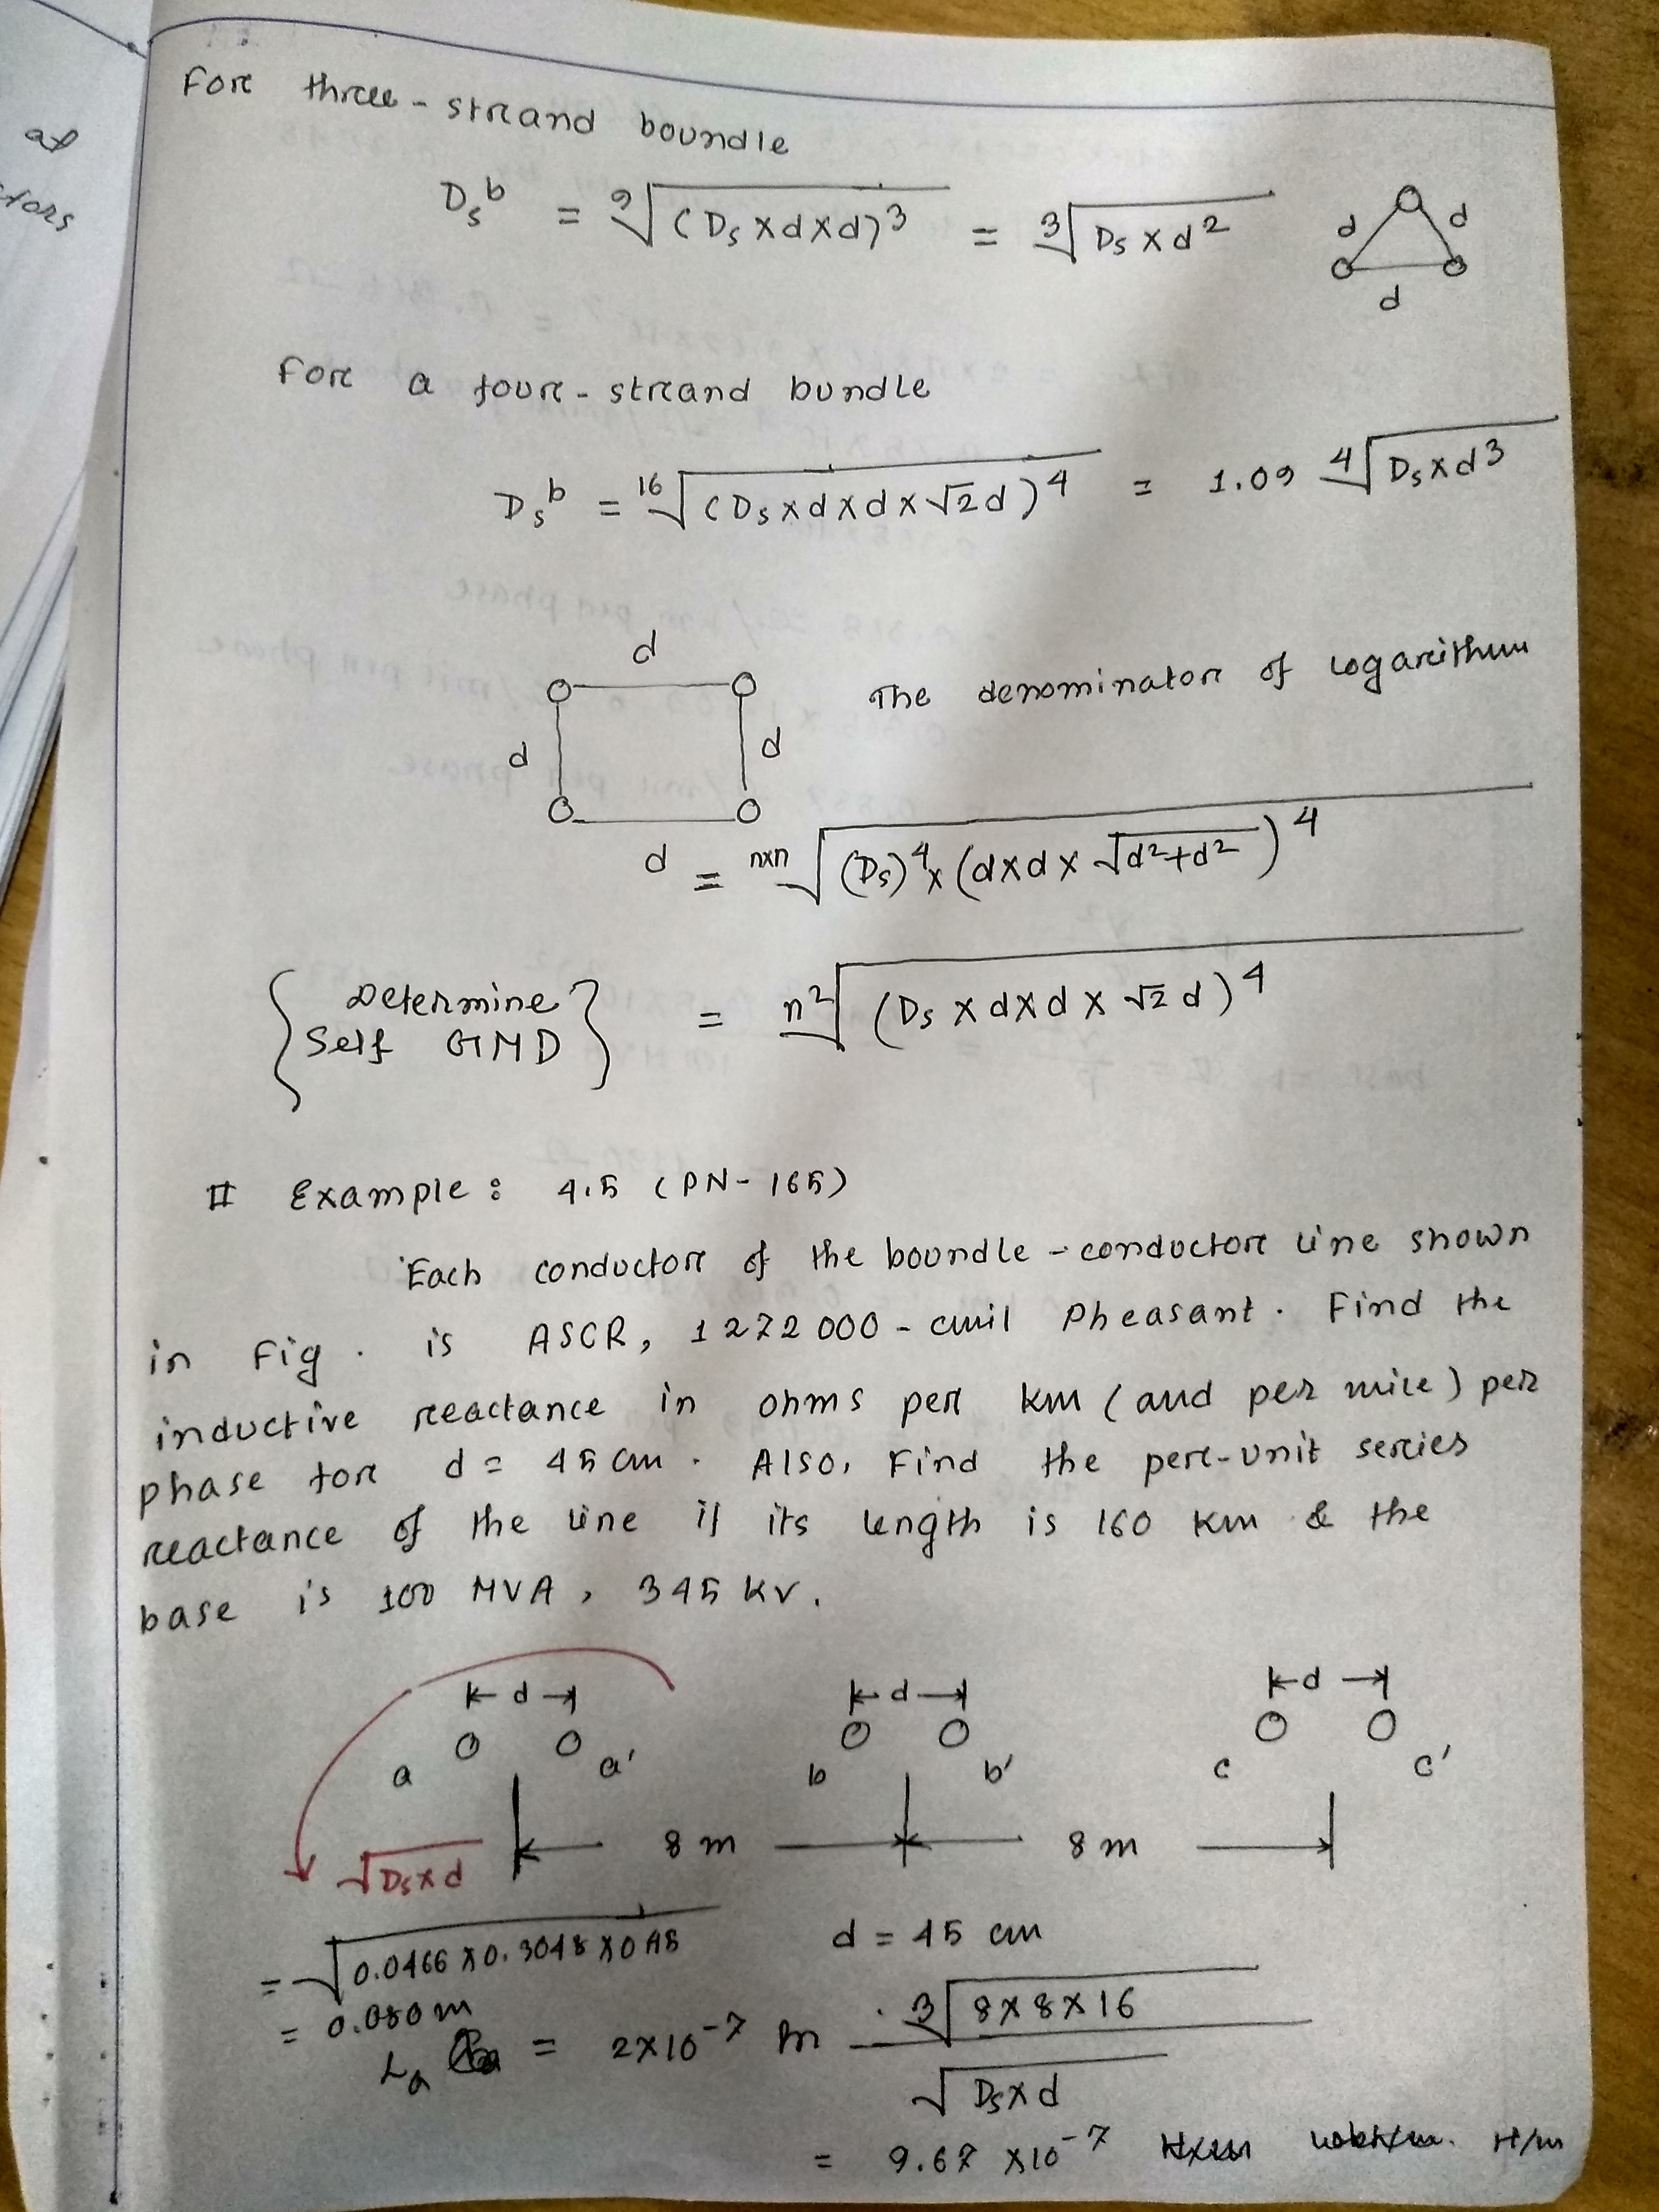 at
tors
For three-strand boundle
Ds^b = ⁹√(Ds×d×d)³ = ³√Ds×d²
d d
d
For a four-strand bundle
Ds^b = ¹⁶√(Ds×d×d×√2d)⁴ = 1.09 ⁴√Ds×d³
d
d d
d
The denominator of logarithum
= n×n√(Ds)⁴×(d×d×√d²+d²)⁴
{Determine Self GMD} = n²√(Ds×d×d×√2d)⁴
# Example: 4.5 (PN-165)
Each conductor of the boundle-conductor line shown
in Fig. is ASCR, 1272000-cmil Pheasant. Find the
inductive reactance in ohms per km (and per mile) per
phase for d = 45 cm. Also, Find the per-unit series
reactance of the line if its length is 160 km & the
base is 100 MVA, 345 kv.
d d d
a a' b b' c c'
8 m 8 m
√Ds×d
= √0.0466×0.3048×0.45
d = 45 cm
= 0.080m
La = 2×10⁻⁷ ln ³√8×8×16 / √Ds×d
= 9.67 ×10⁻⁷ H/m